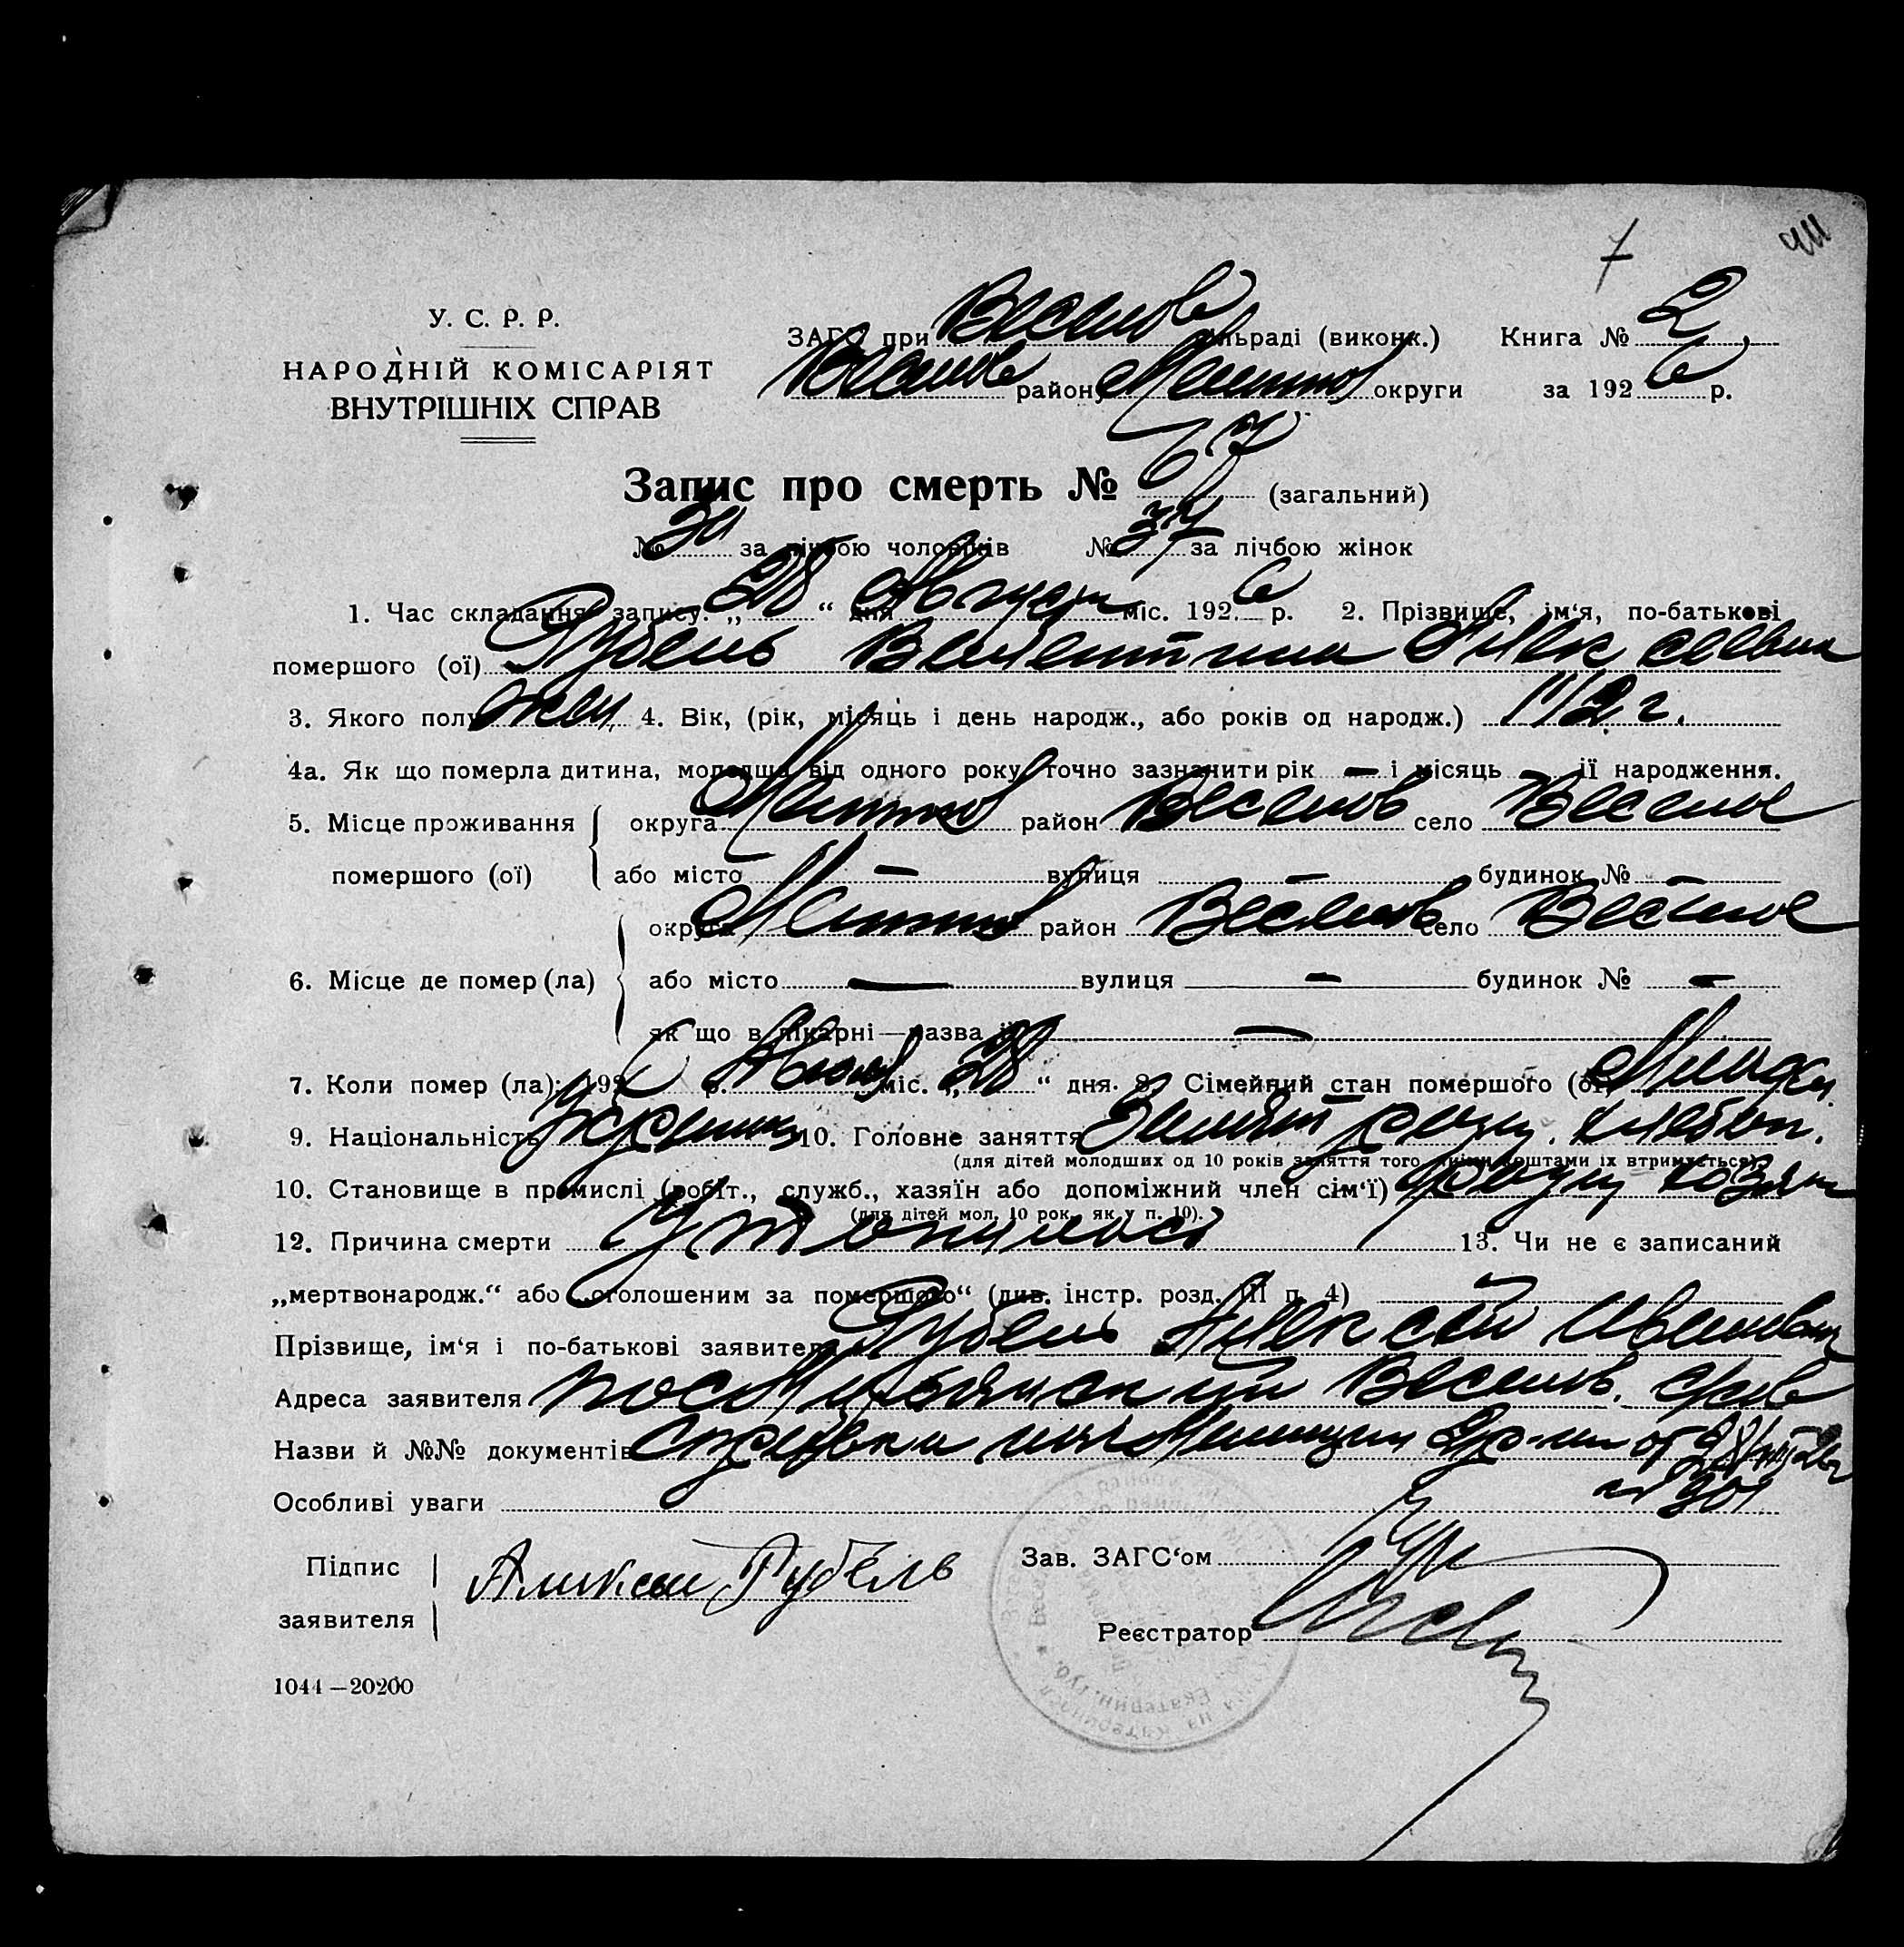 7
У. С. Р. Р.
НАРОДНІЙ КОМІСАРІЯТ
ВНУТРІШНІХ СПРАВ
ЗАГС при Веселов сільраді (виконк.) Книга № 2
Веселов район Мелитоп округи за 1926 р.
Запис про смерть № 67 (загальний)
№ 30 за лічбою чоловіків № 37 за лічбою жінок
1. Час складання запису: „28“ дня Август міс. 1926 р. 2. Прізвище, ім‘я, по-батькові
помершого (ої) Рубель Валентина Алексеевна
3. Якого полу жен 4. Вік, (рік, місяць і день народж., або років од народж.) 1 1/2 г.
4а. Як що померла дитина, молодша від одного року, точно зазначити рік — і місяць — її народження.
5. Місце проживання округа Мелитоп район Веселов село Веселое
помершого (ої) або місто — вулиця — будинок № —
округа Мелитоп район Веселов село Веселое
6. Місце де помер (ла) або місто — вулиця — будинок № —
як що в лікарні—назва її —
7. Коли помер (ла): 1926 р. міс. „28“ дня. 8. Сімейний стан помершого (ої)
9. Національність Украинка 10. Головне заняття хлебоп.
(для дітей молодших од 10 років заняття того, чиїми коштами їх втримується).
10. Становище в промислі (робіт., служб., хазяїн або допоміжний член сім‘ї) хозяин
(для дітей мол. 10 рок. як у п. 10).
12. Причина смерти Утонилась 13. Чи не є записаний
„мертвонародж.“ або „оголошеним за помершого“ (див. інстр. розд. III п. 4)
Прізвище, ім‘я і по-батькові заявителя Рубель Алексей Иванович
Адреса заявителя Веселов.
Назви й №№ документів Справка Милиции от
Особливі уваги
Підпис
заявителя Алексей Рубель
Зав. ЗАГС‘ом
Реєстратор
1044—20200